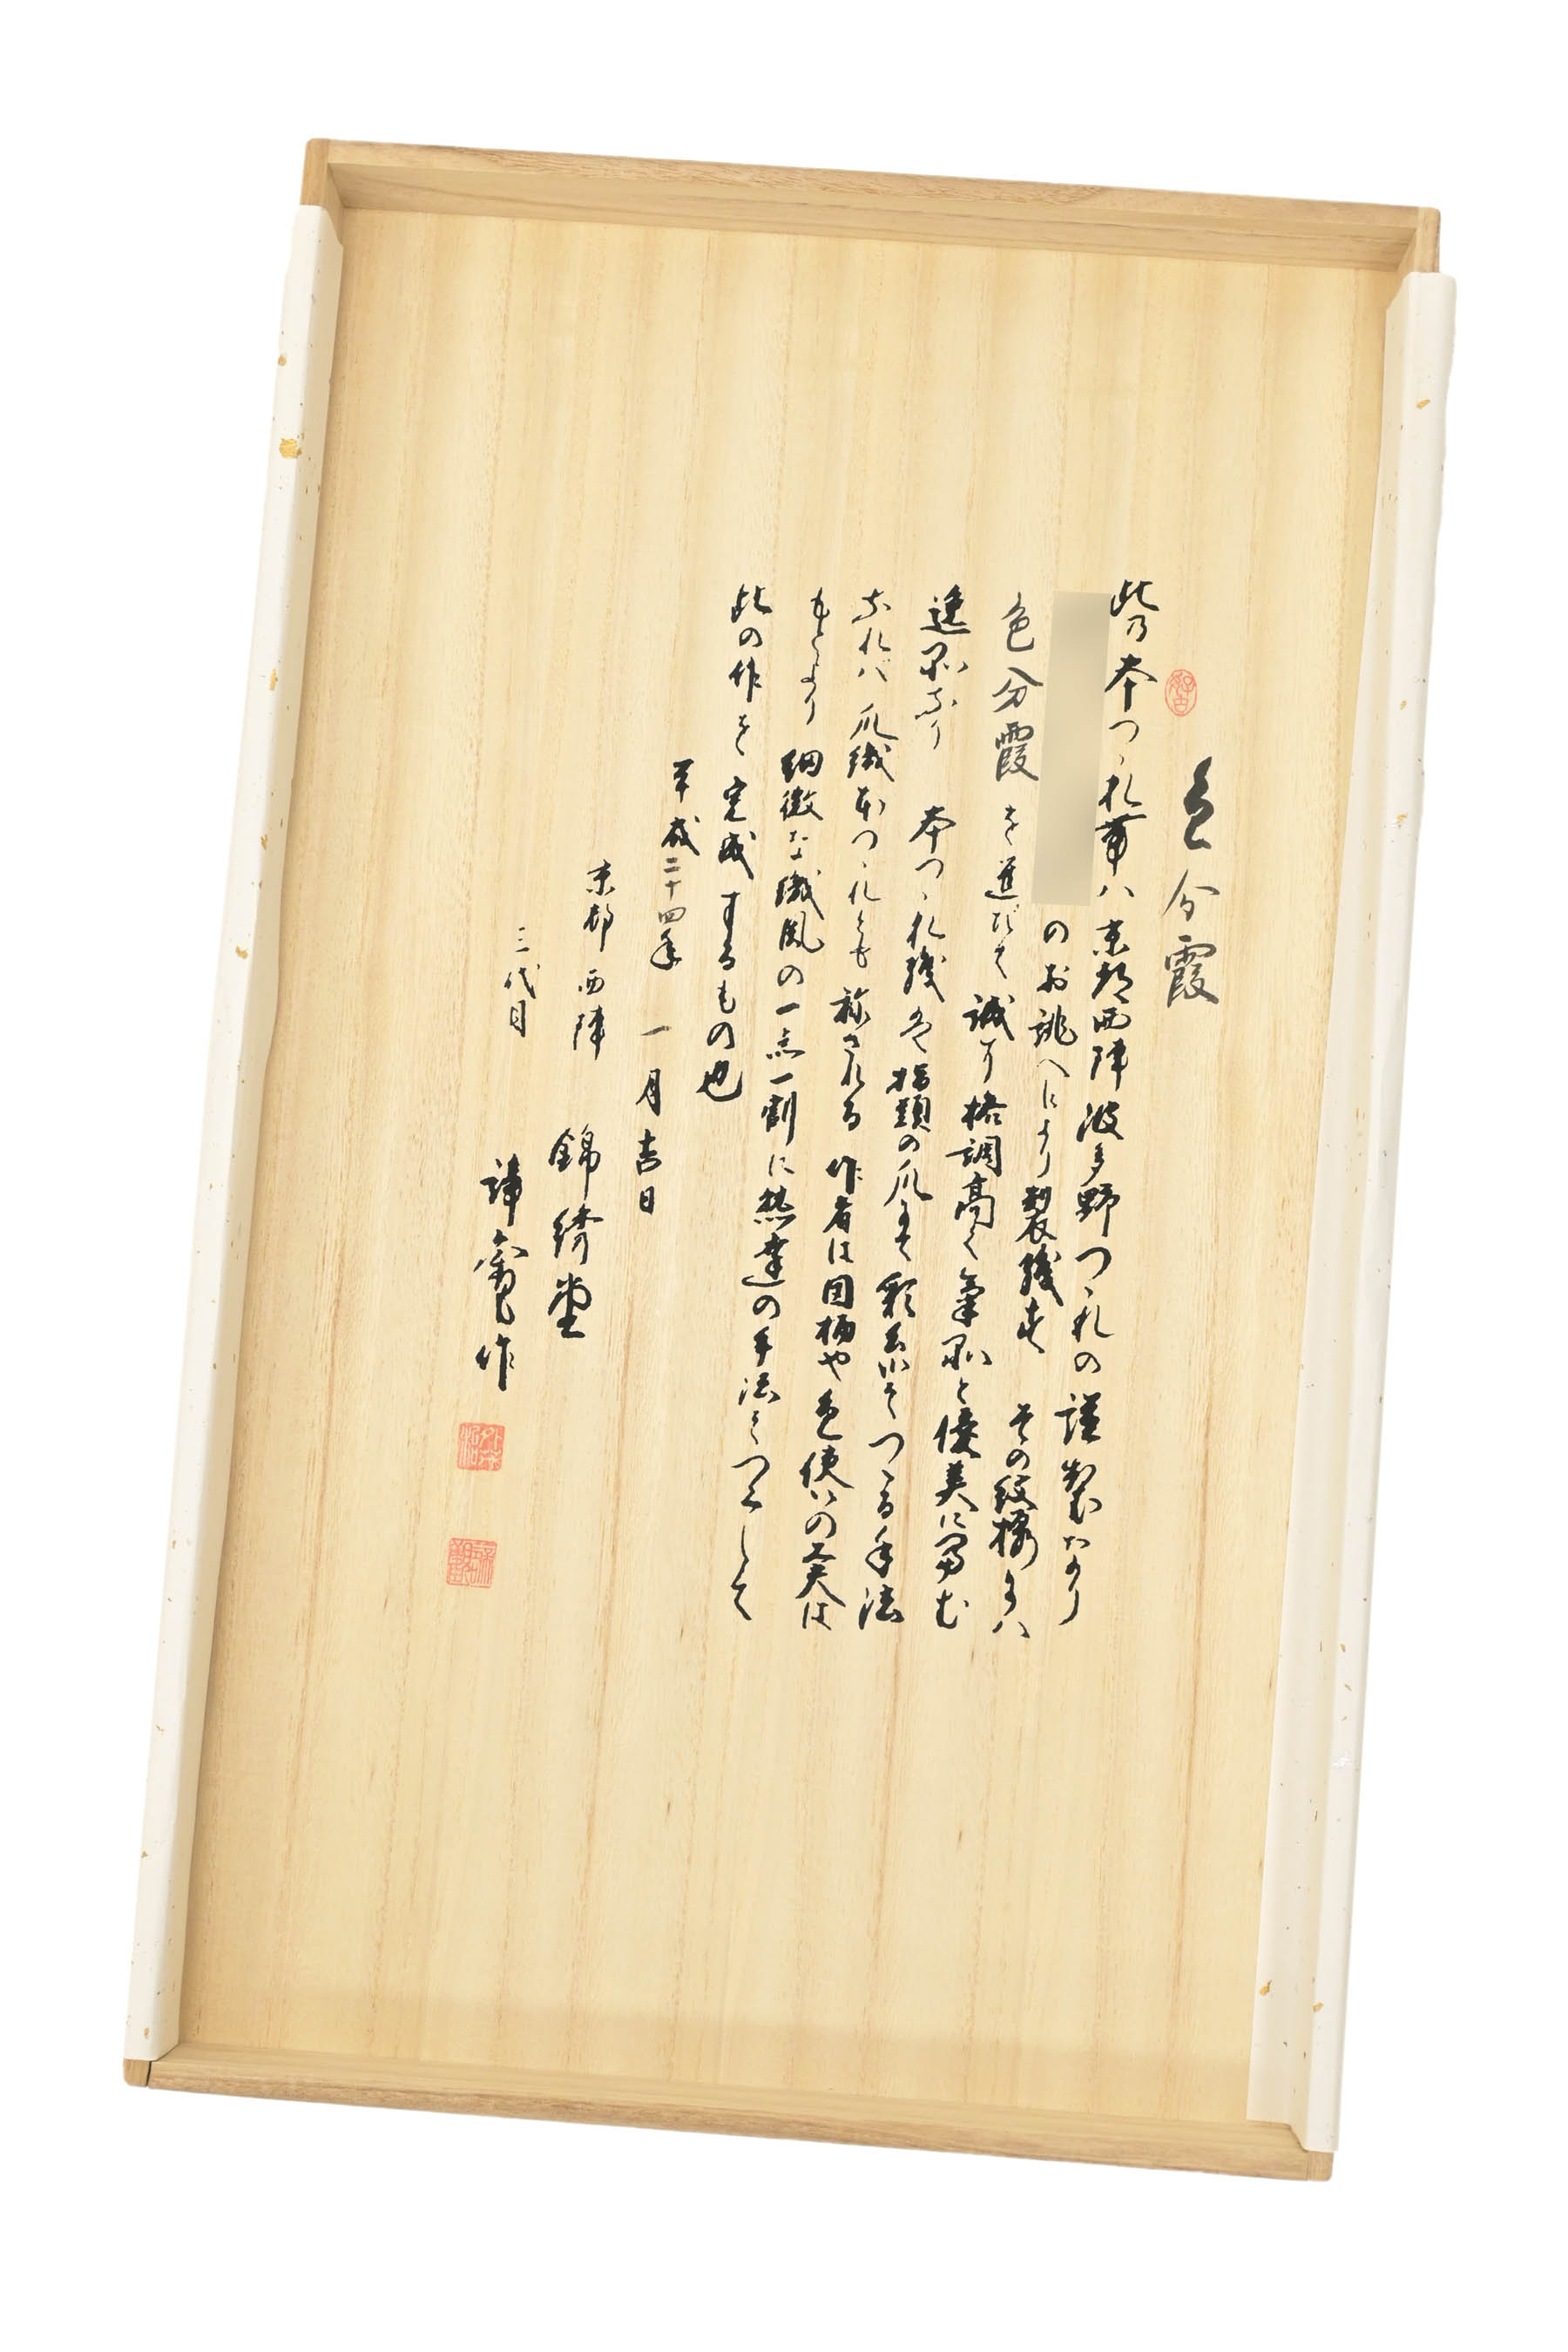 色分霞
此乃本つゝれ帯ハ京都西陣波多野つゝれの謹製なり
のお誂へにより製織す その紋様名ハ
色分霞を選びて誠に格調高く氣品と優美に富む
逸品なり 本つゝれ織は指頭の爪もて彩糸にてつゞる手法
なれバ爪織本つゝれとも称される 作者は図柄や色使いの工夫は
もとより細微な織風の一点一劃に熟達の手法をつくして
此の作を完成するもの也
平成二十四年 一月吉日
京都 西陣 錦綺堂
三代目 作